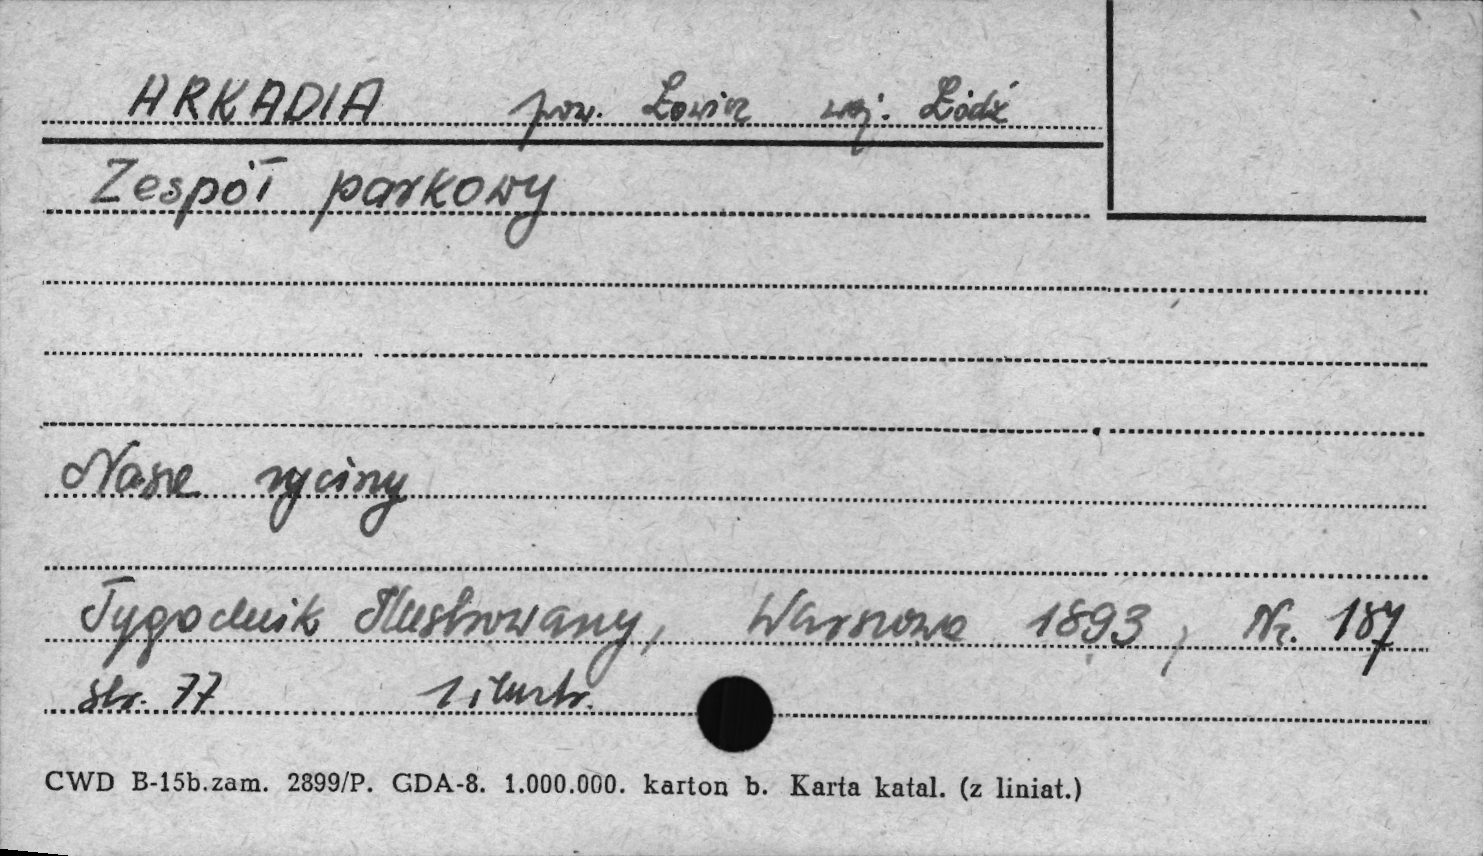 ARKADIA pow. Łowicz woj. Łódź
Zespół parkowy
Nasze ryciny
Tygodnik Ilustrowany, Warszawa 1893, Nr. 187
str. 77 1 ilustr.
CWD B-15b.zam. 2899/P. GDA-8. 1.000.000. karton b. Karta katal. (z liniat.)